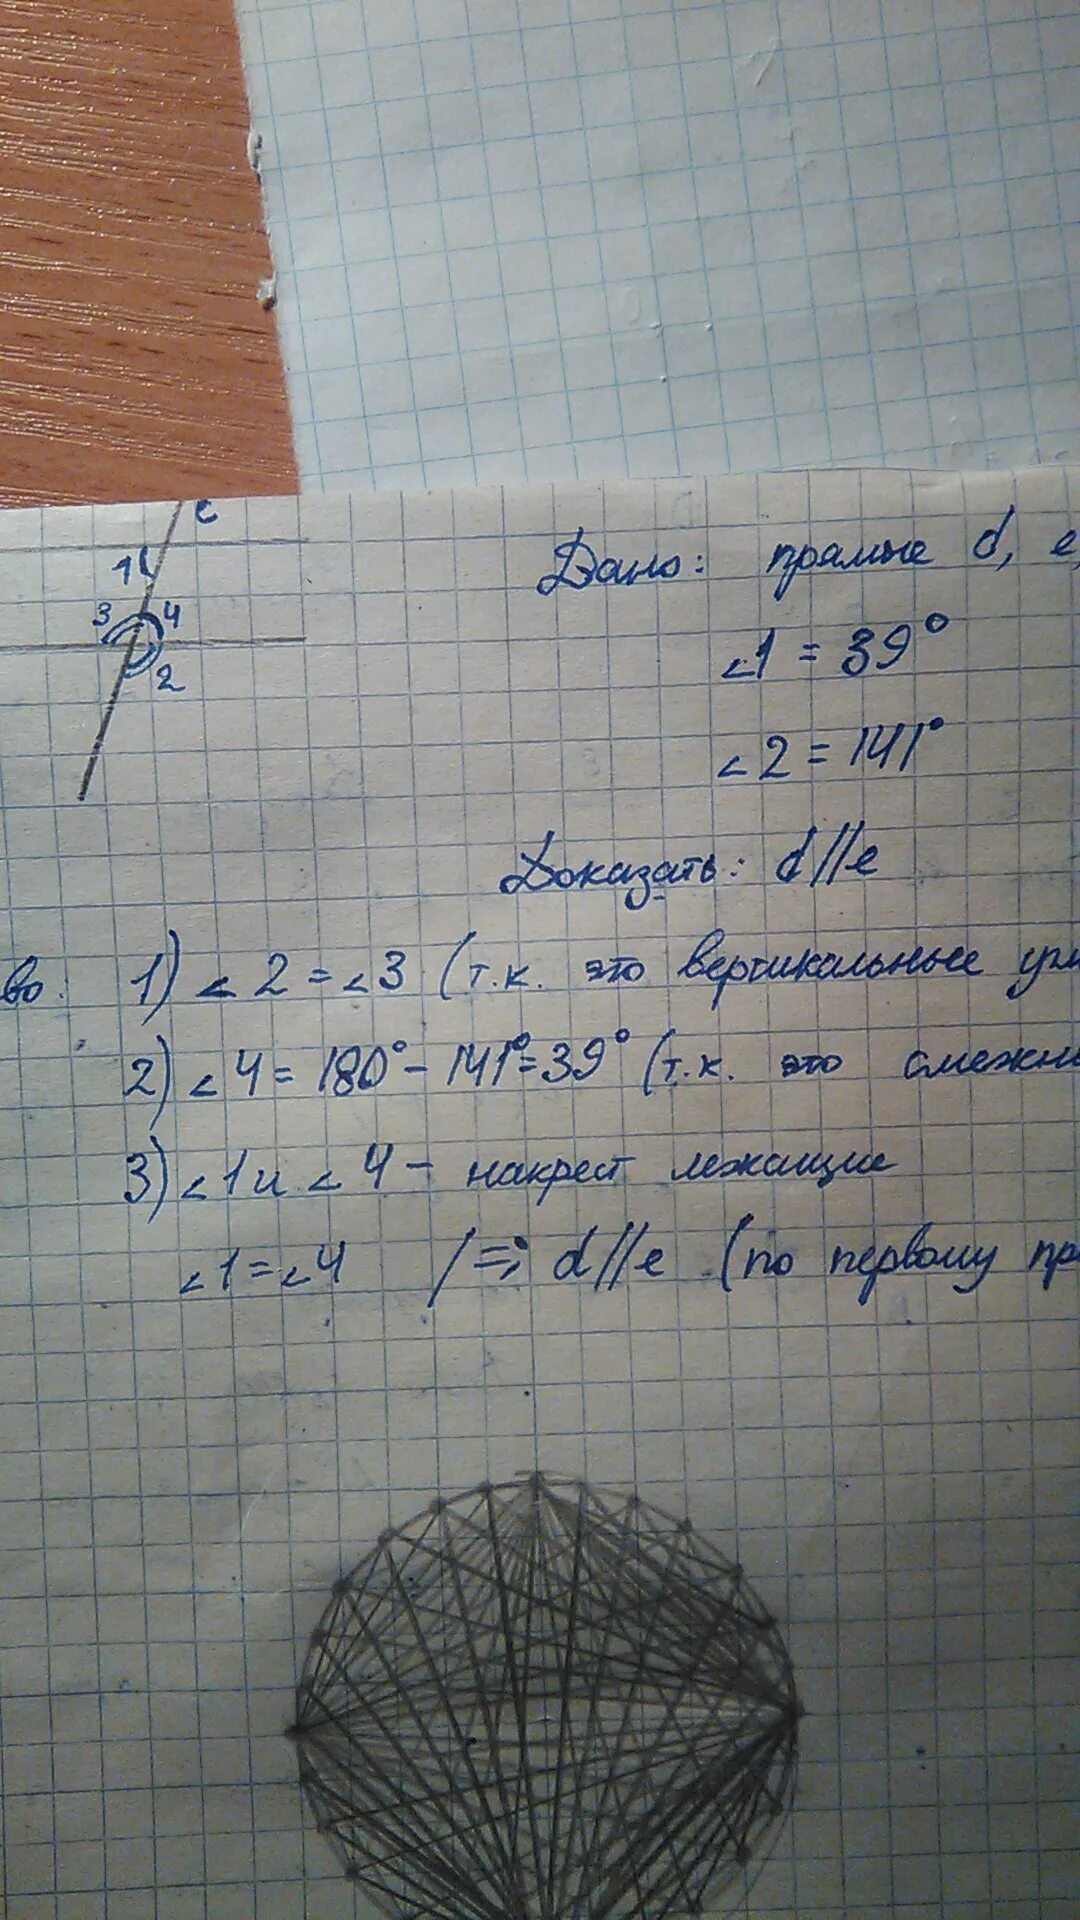 c
1
3 4
2
Дано: прямые d, e,
∠1 = 39°
∠2 = 141°
Доказать: d||e
во: 1) ∠2 = ∠3 (т.к. это вертикальные угл
2) ∠4 = 180° - 141° = 39° (т.к. это смежны
3) ∠1 и ∠4 - накрест лежащие
∠1 = ∠4 / =>; d||e (по первому пр